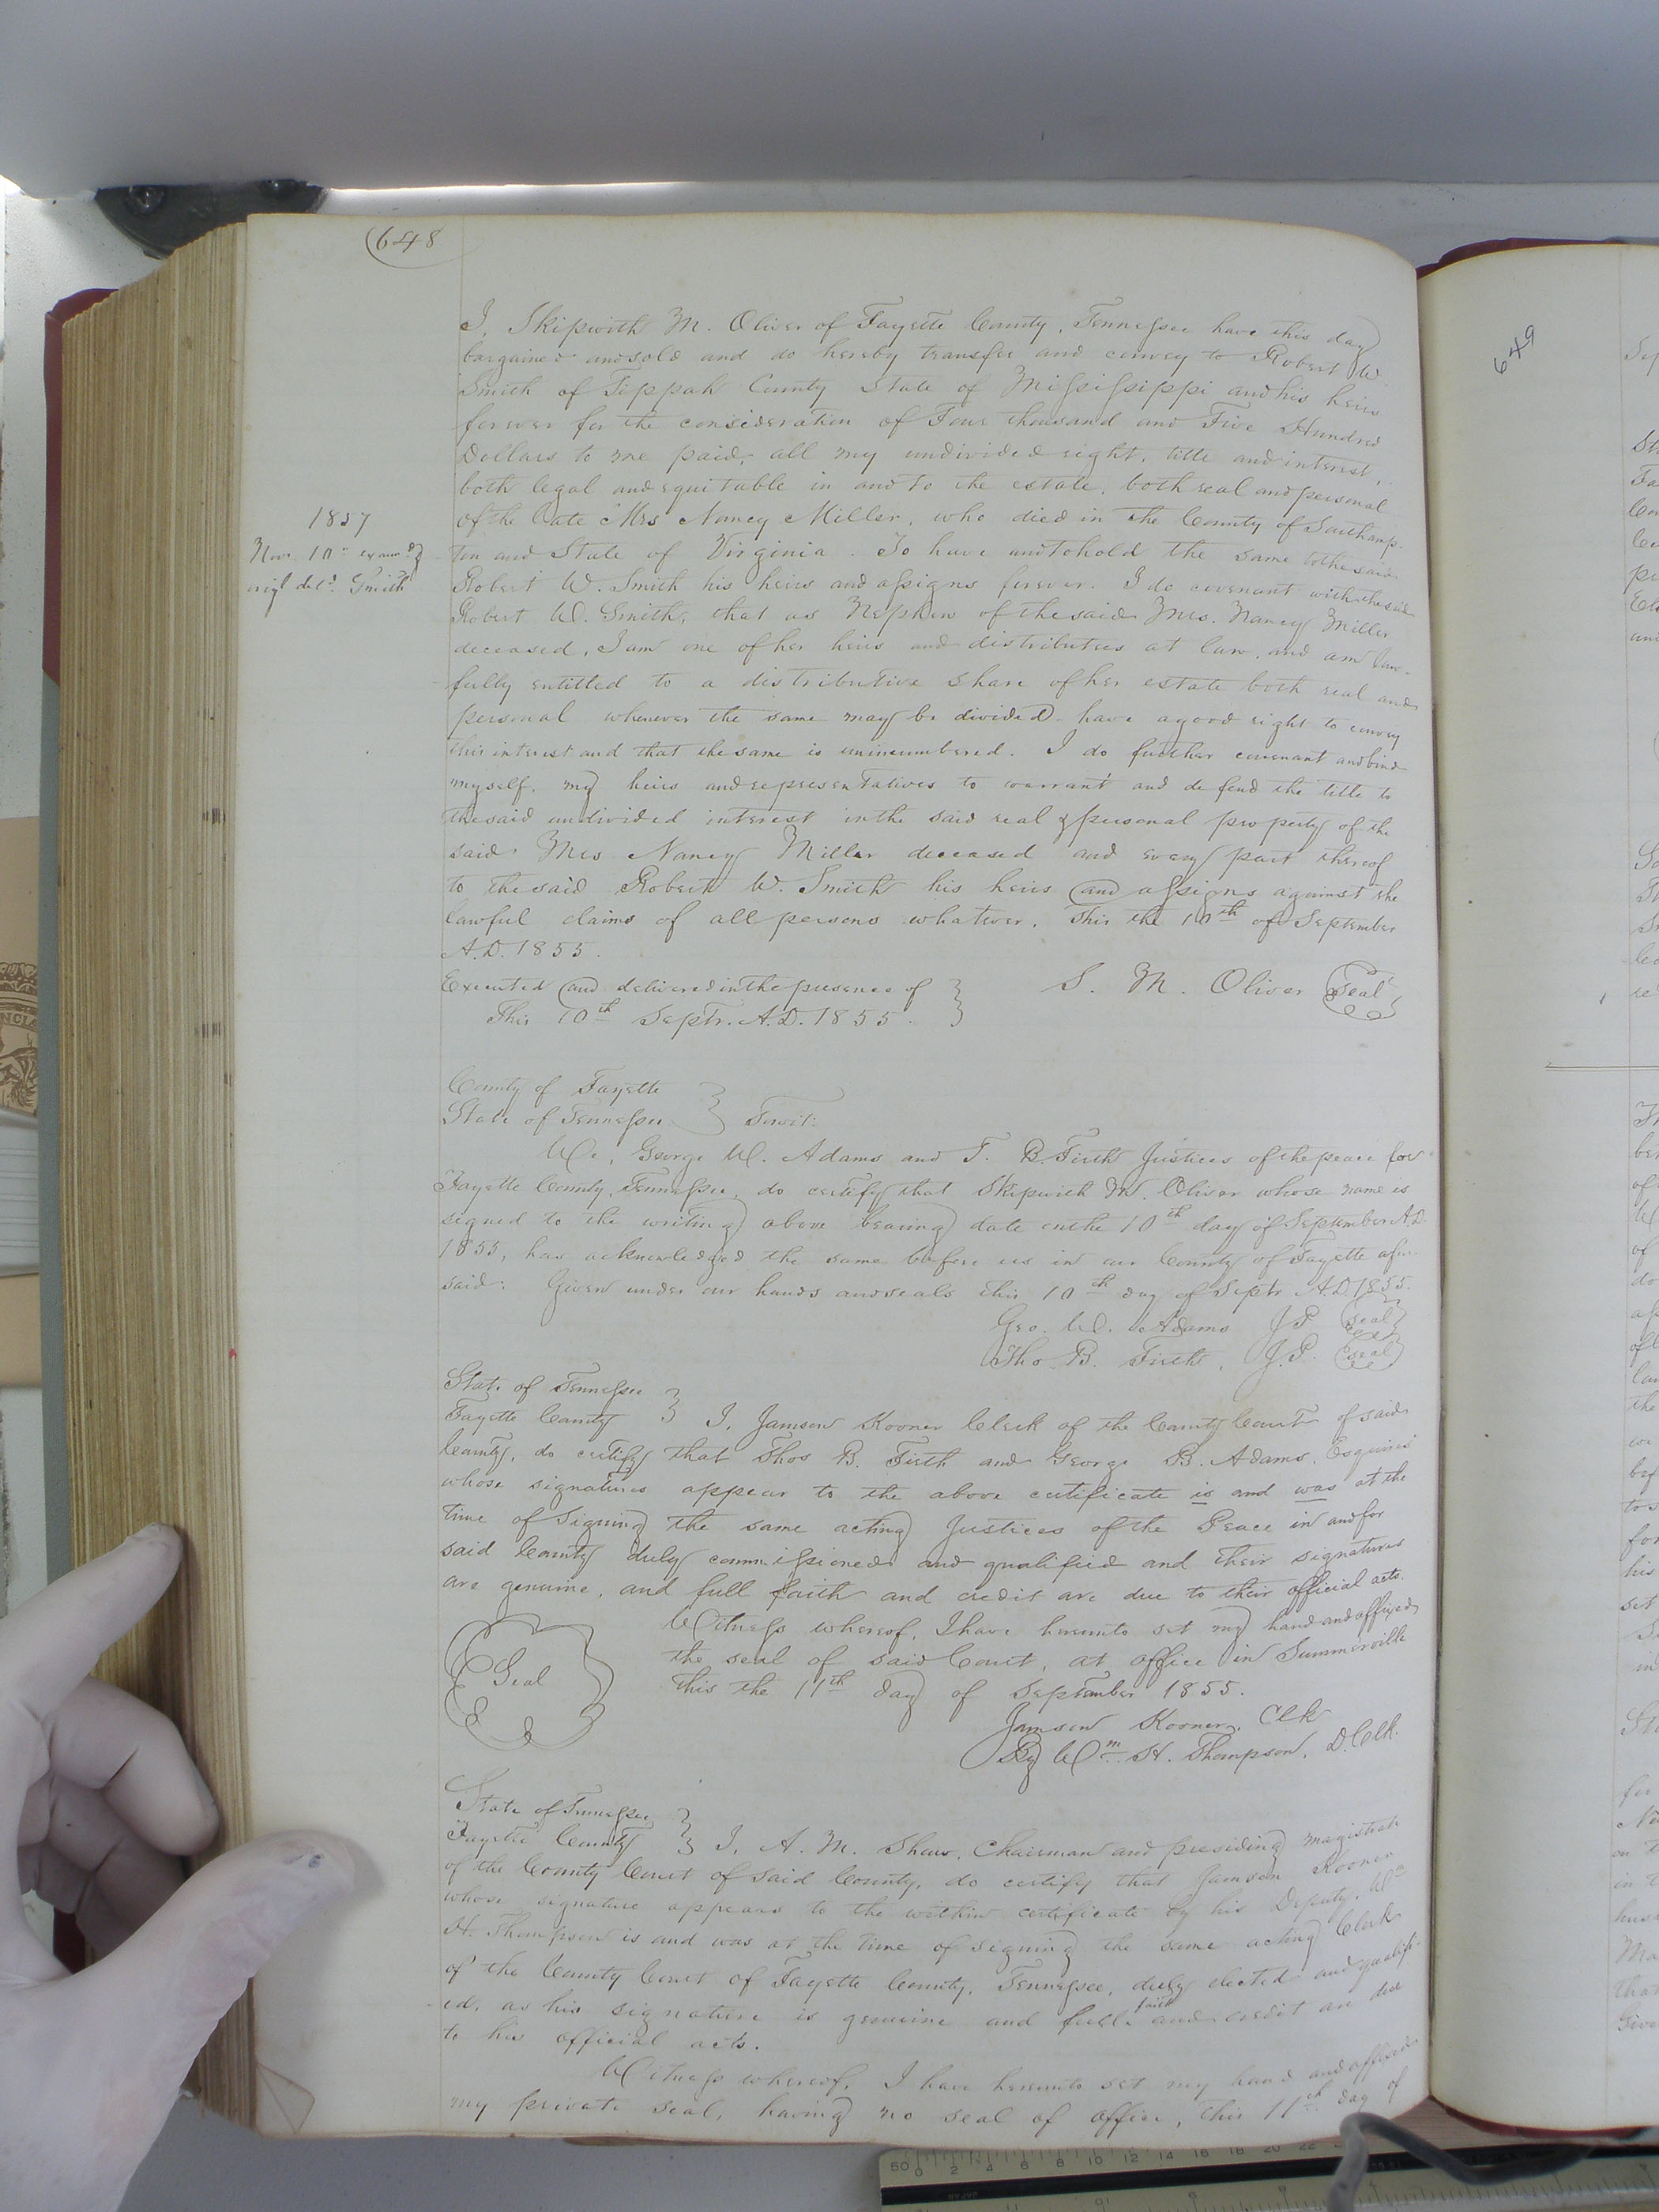 648
I, Skipwith M. Oliver of Fayette County, Tennessee have this day
bargained and sold and do hereby transfer and convey to Robert W.
Smith of Tippah County State of Mississippi and his heirs
forever for the consideration of Four thousand and Five Hundred
Dollars to me paid, all my undivided right, title and interest,
both legal and equitable in and to the estate, both real and personal
of the late Mrs Nancy Miller, who died in the County of Southamp-
ton and State of Virginia. To have and to hold the same to the said
Robert W. Smith his heirs and assigns forever. I do covenant with the said
Robert W. Smith, that as Nephew of the said Mrs. Nancy Miller
deceased, I am one of her heirs and distributees at law, and am law-
fully entitled to a distributive share of her estate both real and
personal whenever the same may be divided - have a good right to convey
this interest and that the same is unincumbered. I do further covenant and bind
myself, my heirs and representatives to warrant and defend the title to
the said undivided interest in the said real & personal property of the
said Mrs Nancy Miller deceased and every part thereof
to the said Robert W. Smith his heirs and assigns against the
lawful claims of all persons whatever. This the 10th of September
A.D. 1855.
1857
Nov. 10th examd
origl deld Smith
Executed and delivered in the presence of
This 10th Septr. A.D. 1855.
S. M. Oliver Seal
County of Fayette
State of Tennessee } Towit:
We, George W. Adams and T. B. Firth Justices of the peace for
Fayette County, Tennessee, do certify that Skipwith M. Oliver whose name is
signed to the writing above bearing date on the 10th day of September A.D.
1855, has acknowledged the same before us in our County of Fayette afore
said. Given under our hands and seals this 10th day of Septr A.D. 1855.
Geo. W. Adams J.P. Seal
Tho. B. Firth, J.P. Seal
State of Tennessee
Fayette County } I, Jamson Kooner Clerk of the County Court of said
County, do certify that Thos B. Firth and George B. Adams, Esquires
whose signatures appear to the above certificate is and was at the
time of signing the same acting Justices of the Peace in and for
said County duly commissioned and qualified and their signatures
are genuine, and full faith and credit are due to their official acts.
Witness whereof, I have hereunto set my hand and affixed
the seal of said Court, at office in Summerville
this the 11th day of September 1855.
Seal
Jamson Kooner, Clk
By Wm H. Thompson, D. Clk.
State of Tennessee
Fayette County } I, A. M. Shaw, Chairman and presiding magistrate
of the County Court of said County, do certify that Jamson Kooner
whose signature appears to the within certificate by his Deputy, Wm
H. Thompson is and was at the time of signing the same acting Clerk
of the County Court of Fayette County, Tennessee, duly elected and qualifi-
ed, as his signature is genuine and full faith and credit are due
to his official acts.
Witness whereof, I have hereunto set my hand and affixed
my private seal, having no seal of office, this 11th day of
649